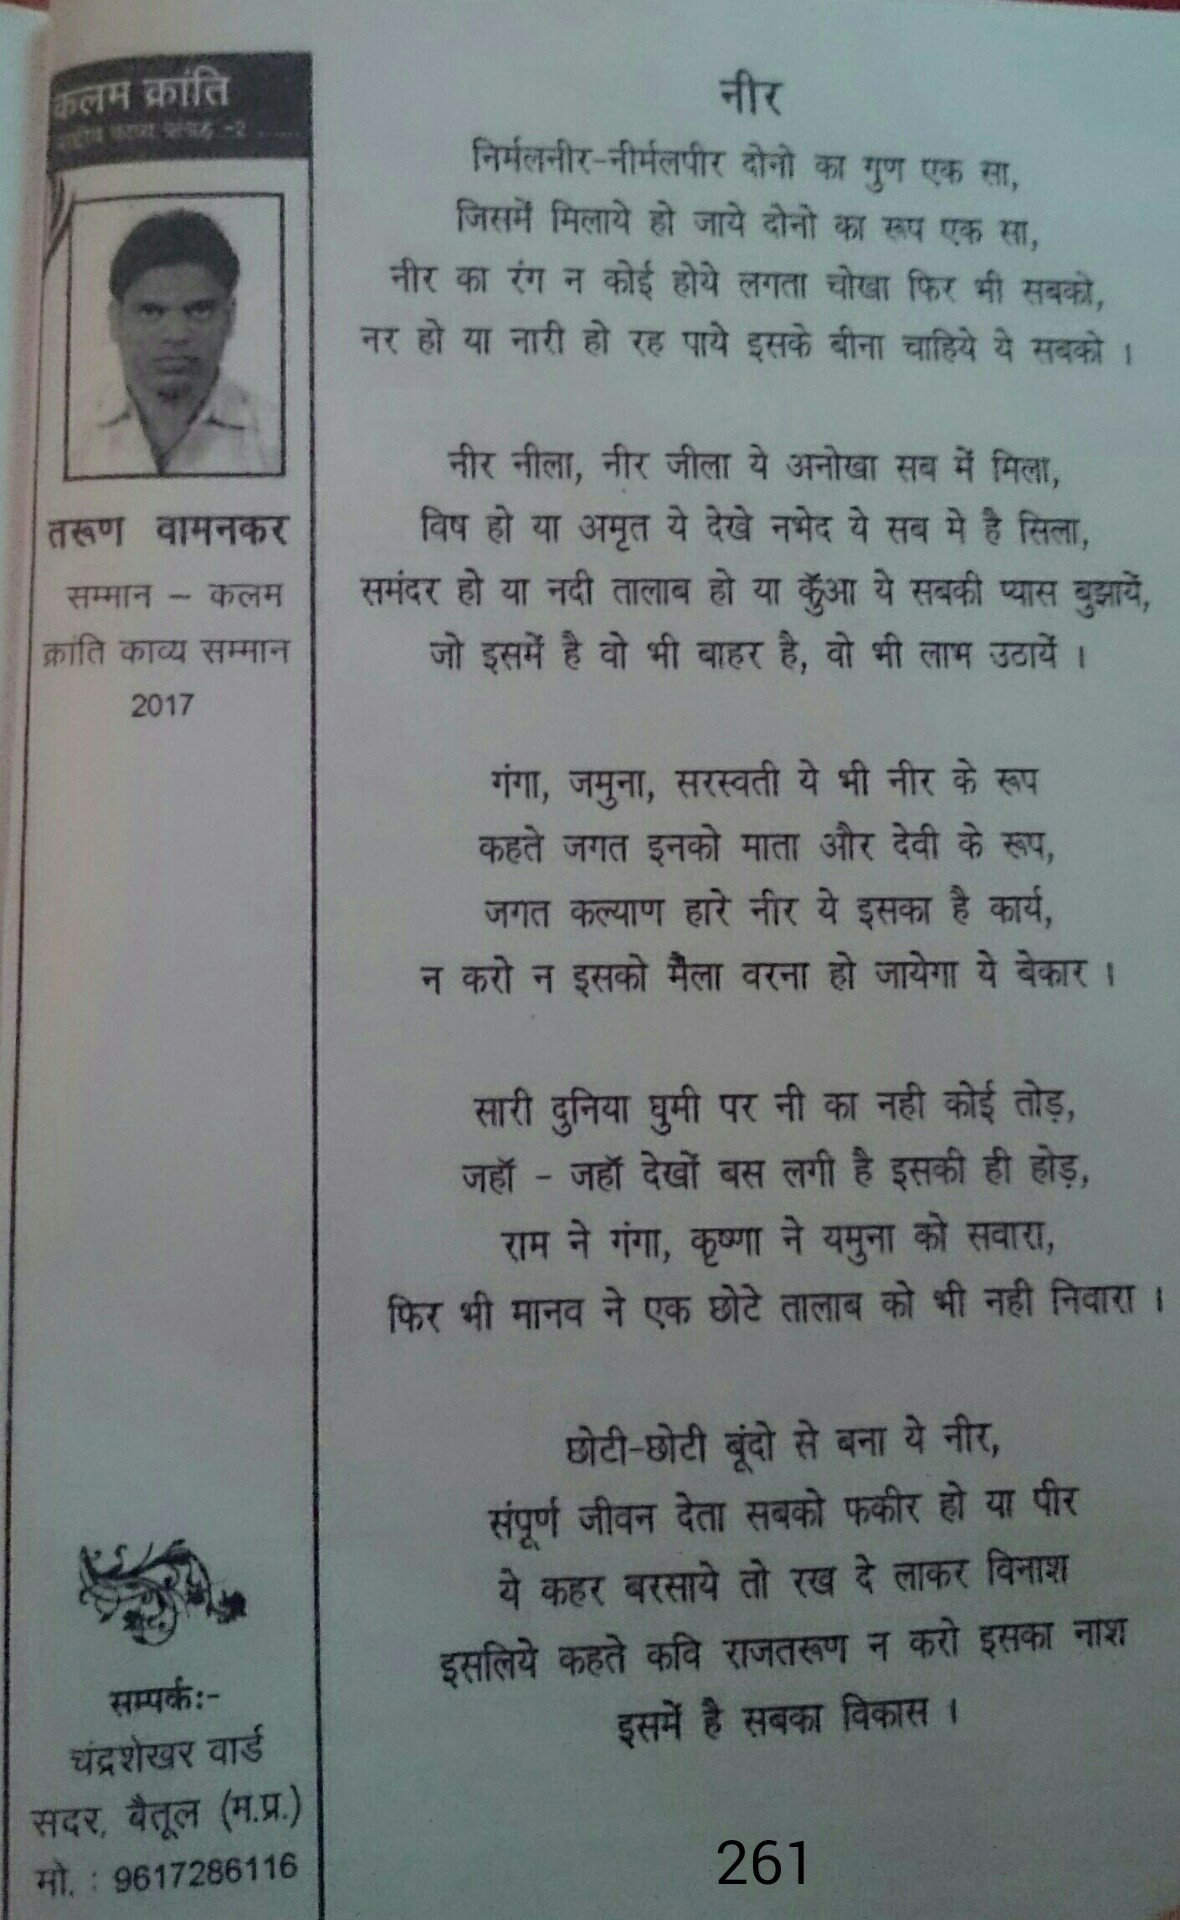 कलम क्रांति
राष्ट्रीय काव्य संग्रह -२ ......
तरूण वामनकर
सम्मान – कलम
क्रांति काव्य सम्मान
2017
सम्पर्क:-
चंद्रशेखर वार्ड
सदर, बैतूल (म.प्र.)
मो. : 9617286116
नीर
निर्मलनीर-नीर्मलपीर दोनो का गुण एक सा,
जिसमें मिलाये हो जाये दोनो का रूप एक सा,
नीर का रंग न कोई होये लगता चोखा फिर भी सबको,
नर हो या नारी हो रह पाये इसके बीना चाहिये ये सबको ।
नीर नीला, नीर जीला ये अनोखा सब में मिला,
विष हो या अमृत ये देखे नभेद ये सब मे है सिला,
समंदर हो या नदी तालाब हो या कुॅंआ ये सबकी प्यास बुझायें,
जो इसमें है वो भी बाहर है, वो भी लाभ उठायें ।
गंगा, जमुना, सरस्वती ये भी नीर के रूप
कहते जगत इनको माता और देवी के रूप,
जगत कल्याण हारे नीर ये इसका है कार्य,
न करो न इसको मैला वरना हो जायेगा ये बेकार ।
सारी दुनिया घुमी पर नी का नही कोई तोड़,
जहॉ - जहॉ देखों बस लगी है इसकी ही होड़,
राम ने गंगा, कृष्णा ने यमुना को सवारा,
फिर भी मानव ने एक छोटे तालाब को भी नही निवारा ।
छोटी-छोटी बूंदो से बना ये नीर,
संपूर्ण जीवन देता सबको फकीर हो या पीर
ये कहर बरसाये तो रख दे लाकर विनाश
इसलिये कहते कवि राजतरूण न करो इसका नाश
इसमें है सबका विकास ।
261